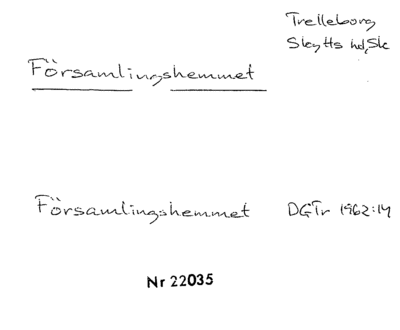 Trelleborg
Skytts hd, Sk
Församlingshemmet
Församlingshemmet DGTr 1962:14
Nr 22035